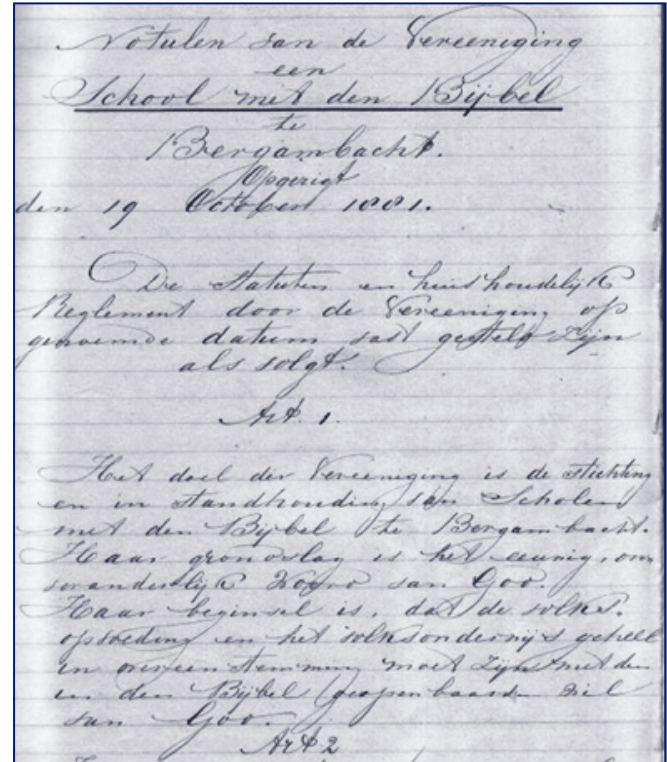 Notulen van de Vereeniging
een
School met den Bijbel
te
Bergambacht.
Opgerigt
den 19 October 1881.
De Statuten en huishoudelijk
Reglement door de Vereeniging op
genoemde datum vast gesteld zijn
als volgt.
Art. 1.
Het doel der Vereeniging is de stichting
en in standhouding van Scholen
met den Bijbel te Bergambacht.
Haar grondslag is het eeuwig, on
veranderlijk Woord van God.
Haar beginsel is, dat de volks.
opvoeding en het volksonderwijs geheel
in overeenstemming moet zijn met den
in den Bijbel geopenbaarden wil
van God.
Art 2